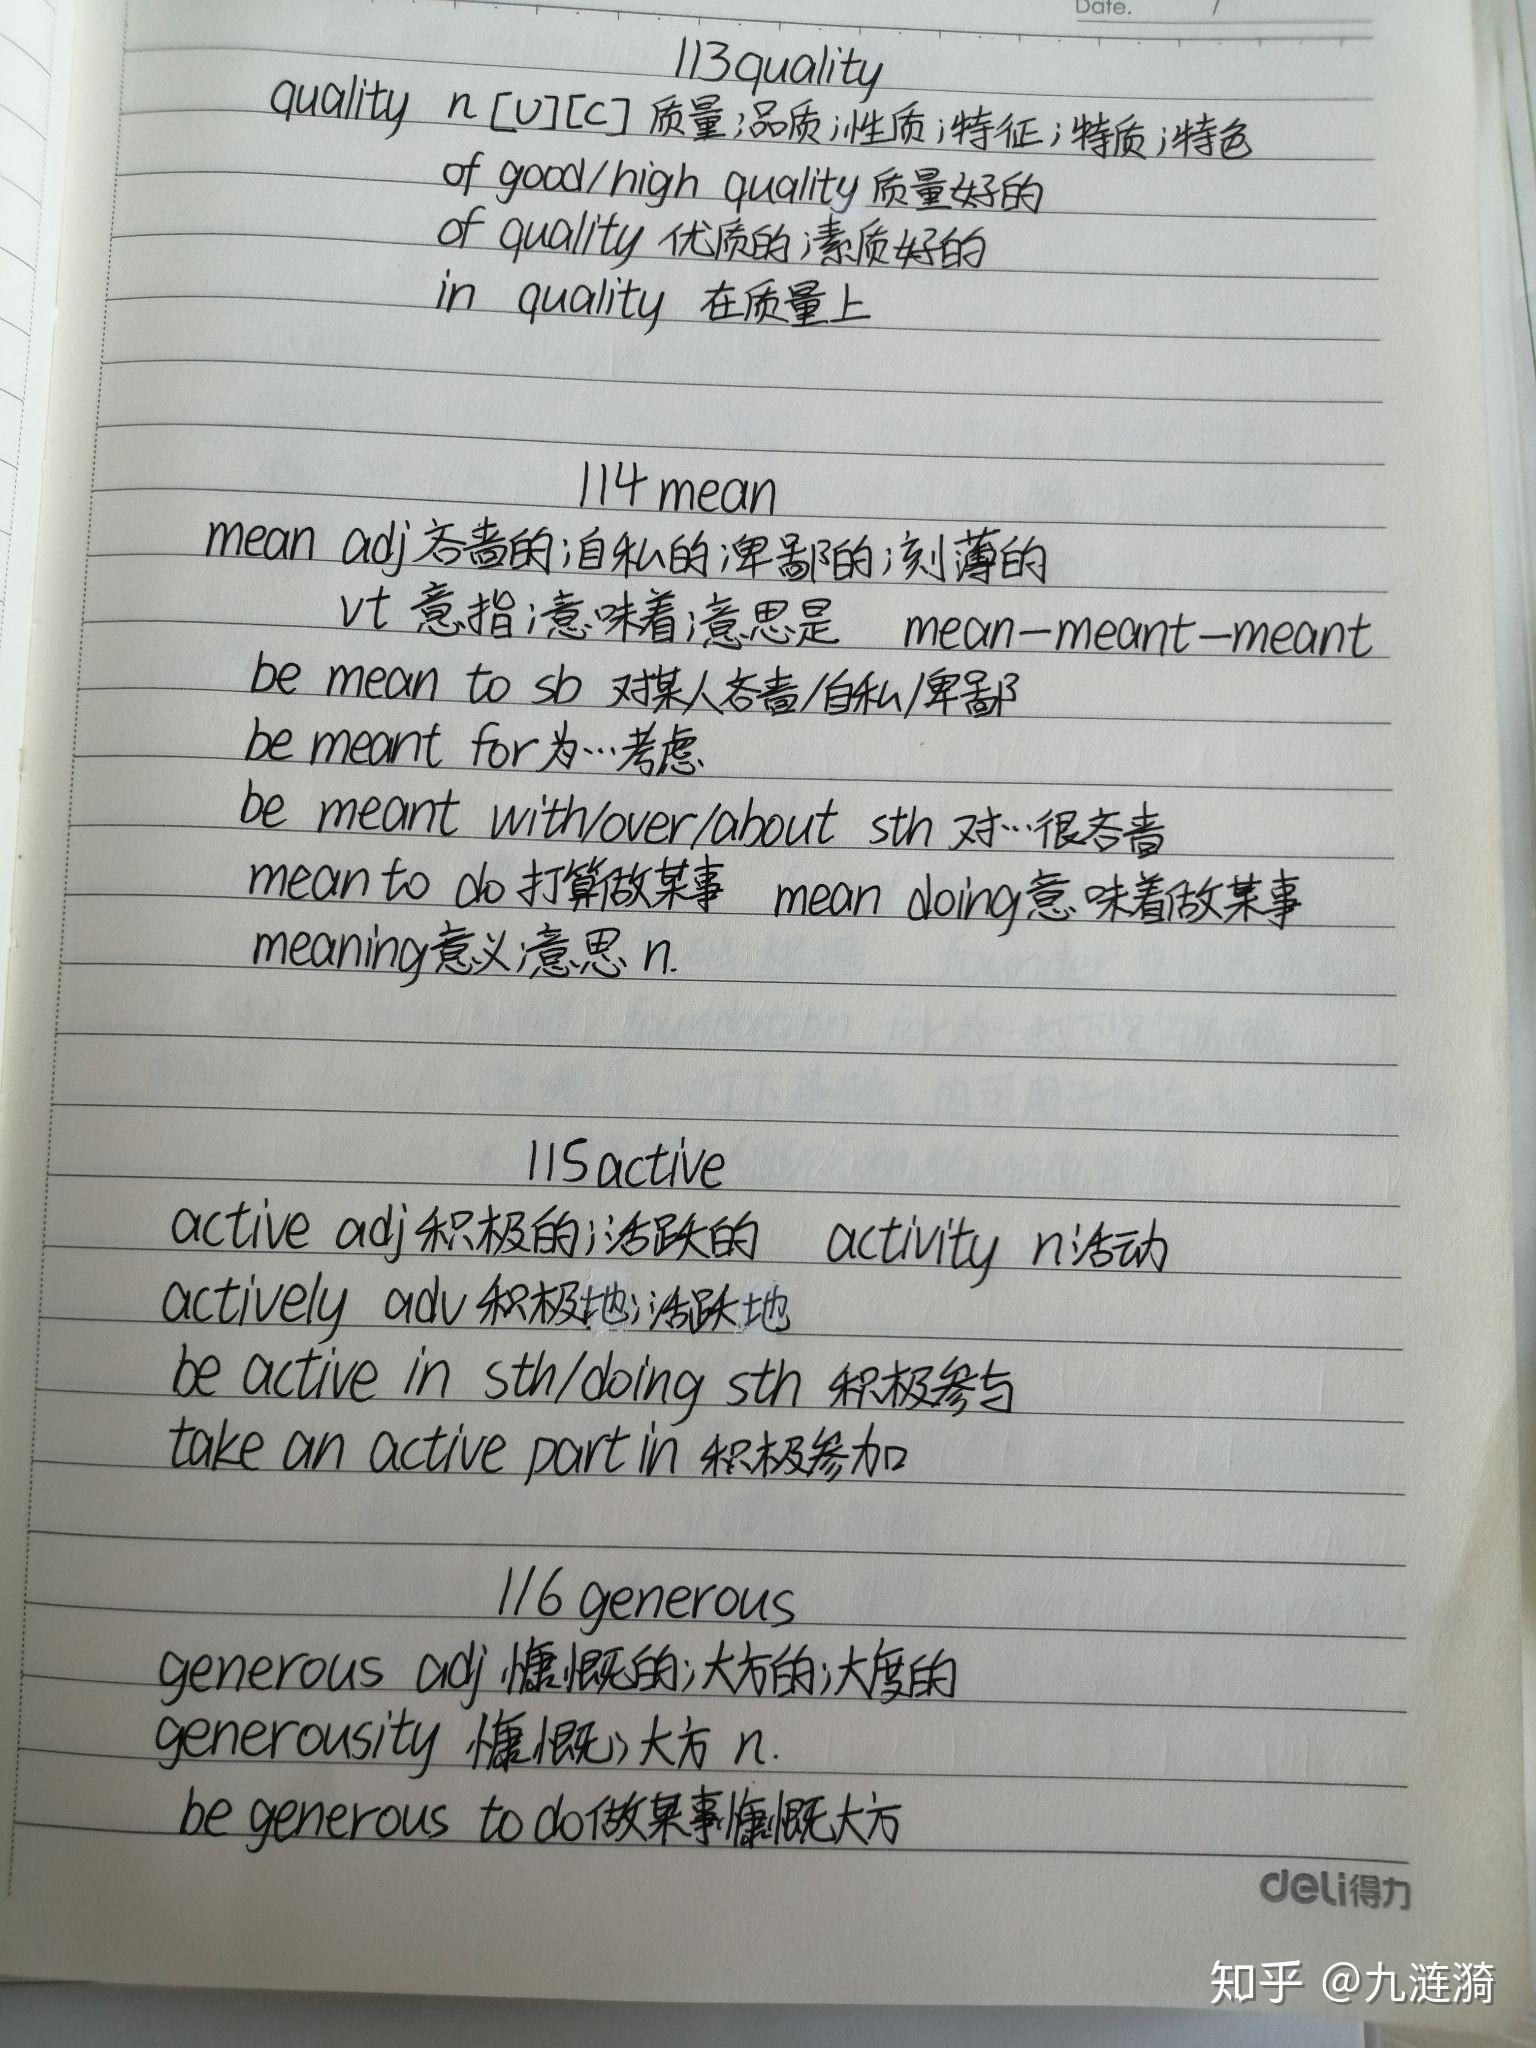 Date. /
113 quality
quality n [U][C] 质量;品质;性质;特征;特质;特色
of good/high quality 质量好的
of quality 优质的;素质好的
in quality 在质量上
114 mean
mean adj 吝啬的;自私的;卑鄙的;刻薄的
vt 意指;意味着;意思是 mean-meant-meant
be mean to sb 对某人吝啬/自私/卑鄙
be meant for 为…考虑
be meant with/over/about sth 对…很吝啬
mean to do 打算做某事 mean doing 意味着做某事
meaning 意义;意思 n.
115 active
active adj 积极的;活跃的 activity n 活动
actively adv 积极地;活跃地
be active in sth/doing sth 积极参与
take an active part in 积极参加
116 generous
generous adj 慷慨的;大方的;大度的
generousity 慷慨;大方 n.
be generous to do 做某事慷慨大方
deli得力
知乎 @九涟漪